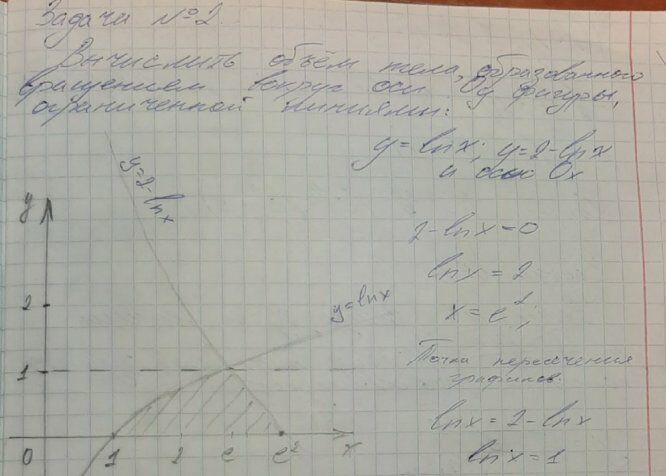 Задача №2.
Вычислить объём тела, образованного
вращением вокруг оси Оу фигуры,
ограниченной линиями:
y=lnx; y=2-lnx
и осью Ox
y=2-lnx
y
2-lnx=0
lnx=2
x=e²;
2
y=lnx
1
Точка пересечения
графиков:
lnx=2-lnx
lnx=1
0 1 2 e e² x